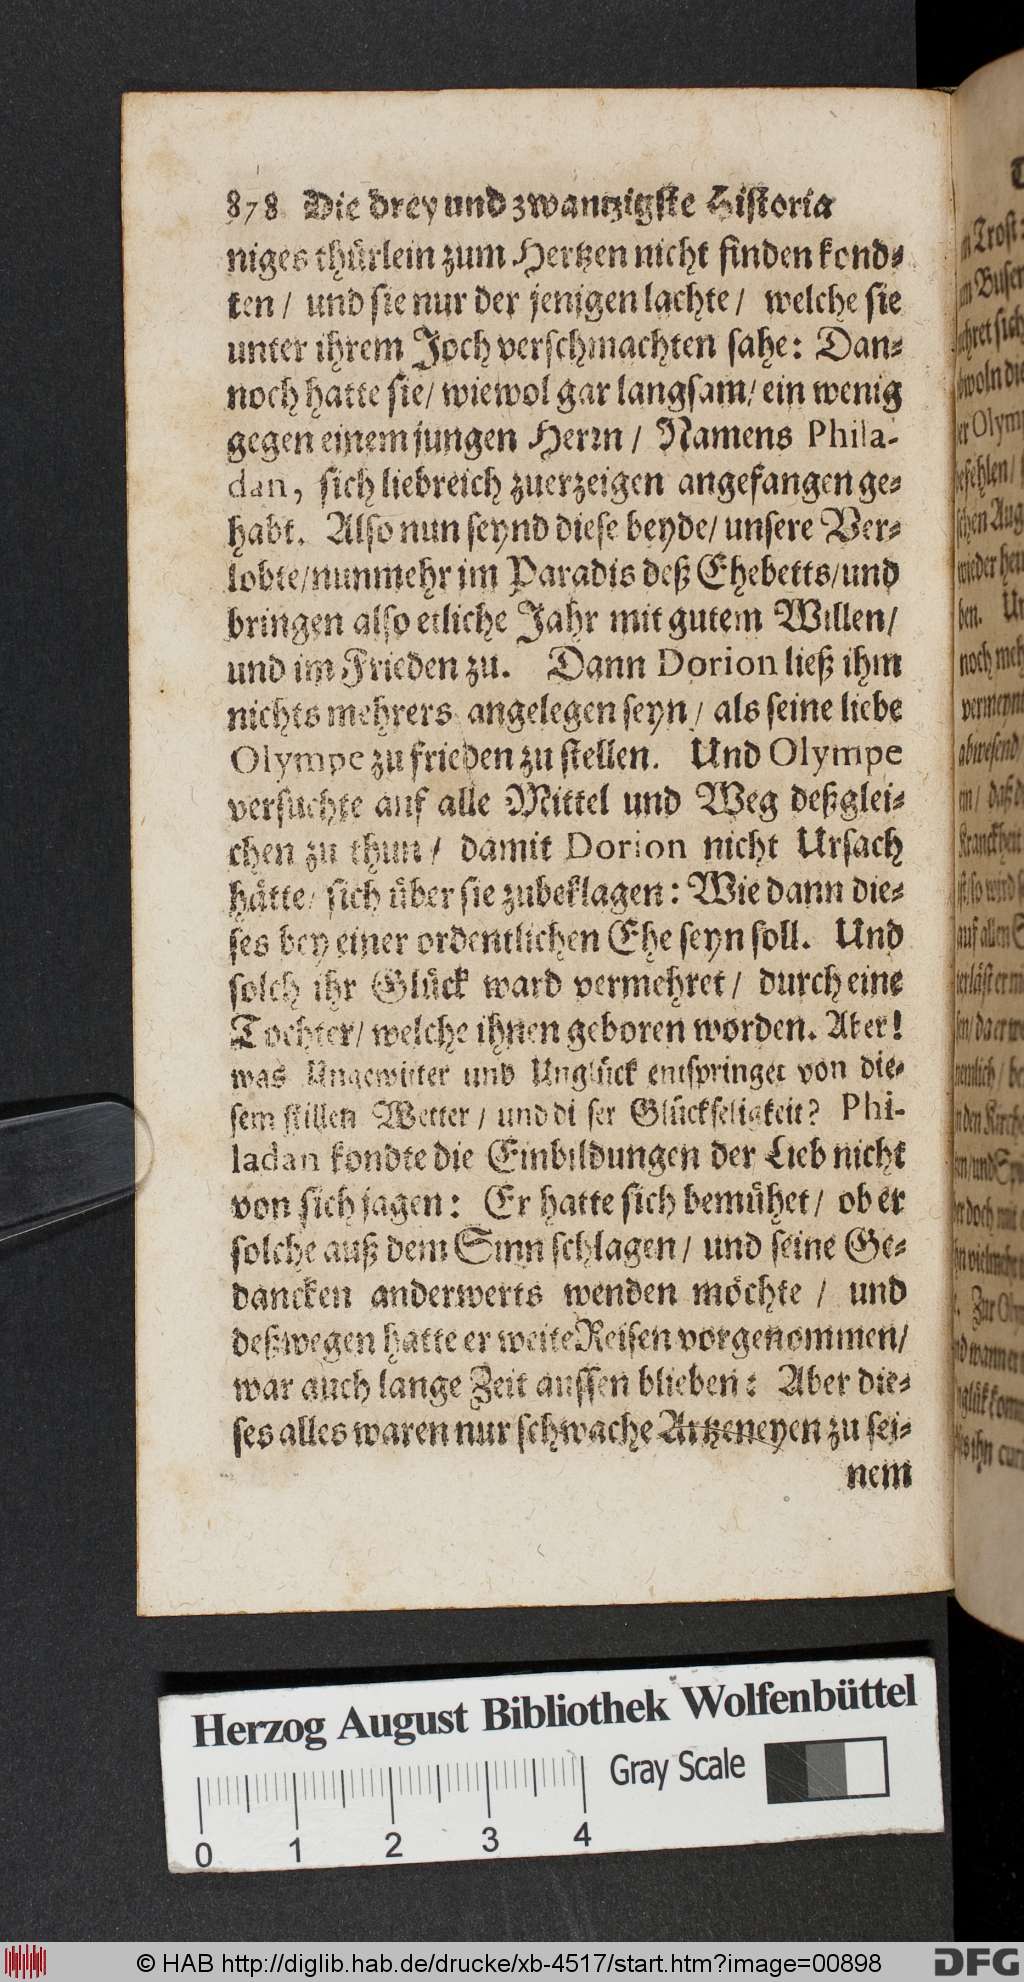 878 Die drey und zwantzigste Historia
niges thürlein zum Hertzen nicht finden kond-
ten / und sie nur der jenigen lachte / welche sie
unter ihrem Joch verschmachten sahe: Dan-
noch hatte sie / wiewol gar langsam / ein wenig
gegen einem jungen Herrn / Namens Phila-
dan, sich liebreich zuerzeigen angefangen ge-
habt. Also nun seynd diese beyde / unsere Ver-
lobte / nunmehr im Paradis deß Ehebetts / und
bringen also etliche Jahr mit gutem Willen /
und im Frieden zu. Dann Dorion ließ ihm
nichts mehrers angelegen seyn / als seine liebe
Olympe zu frieden zu stellen. Und Olympe
versuchte auf alle Mittel und Weg deßglei-
chen zu thun / damit Dorion nicht Ursach
hätte / sich über sie zubeklagen: Wie dann die-
ses bey einer ordentlichen Ehe seyn soll. Und
solch ihr Glück ward vermehret / durch eine
Tochter / welche ihnen geboren worden. Aber!
was Ungewitter und Unglück entspringet von die-
sem stillen Wetter / und di ser Glückseligkeit? Phi-
ladan kondte die Einbildungen der Lieb nicht
von sich jagen: Er hatte sich bemühet / ob er
solche auß dem Sinn schlagen / und seine Ge-
dancken anderwerts wenden möchte / und
deßwegen hatte er weite Reisen vorgenommen /
war auch lange Zeit aussen blieben: Aber die-
ses alles waren nur schwache Artzeneyen zu sei-
nem
Herzog August Bibliothek Wolfenbüttel
Gray Scale
0 1 2 3 4
© HAB http://diglib.hab.de/drucke/xb-4517/start.htm?image=00898
DFG